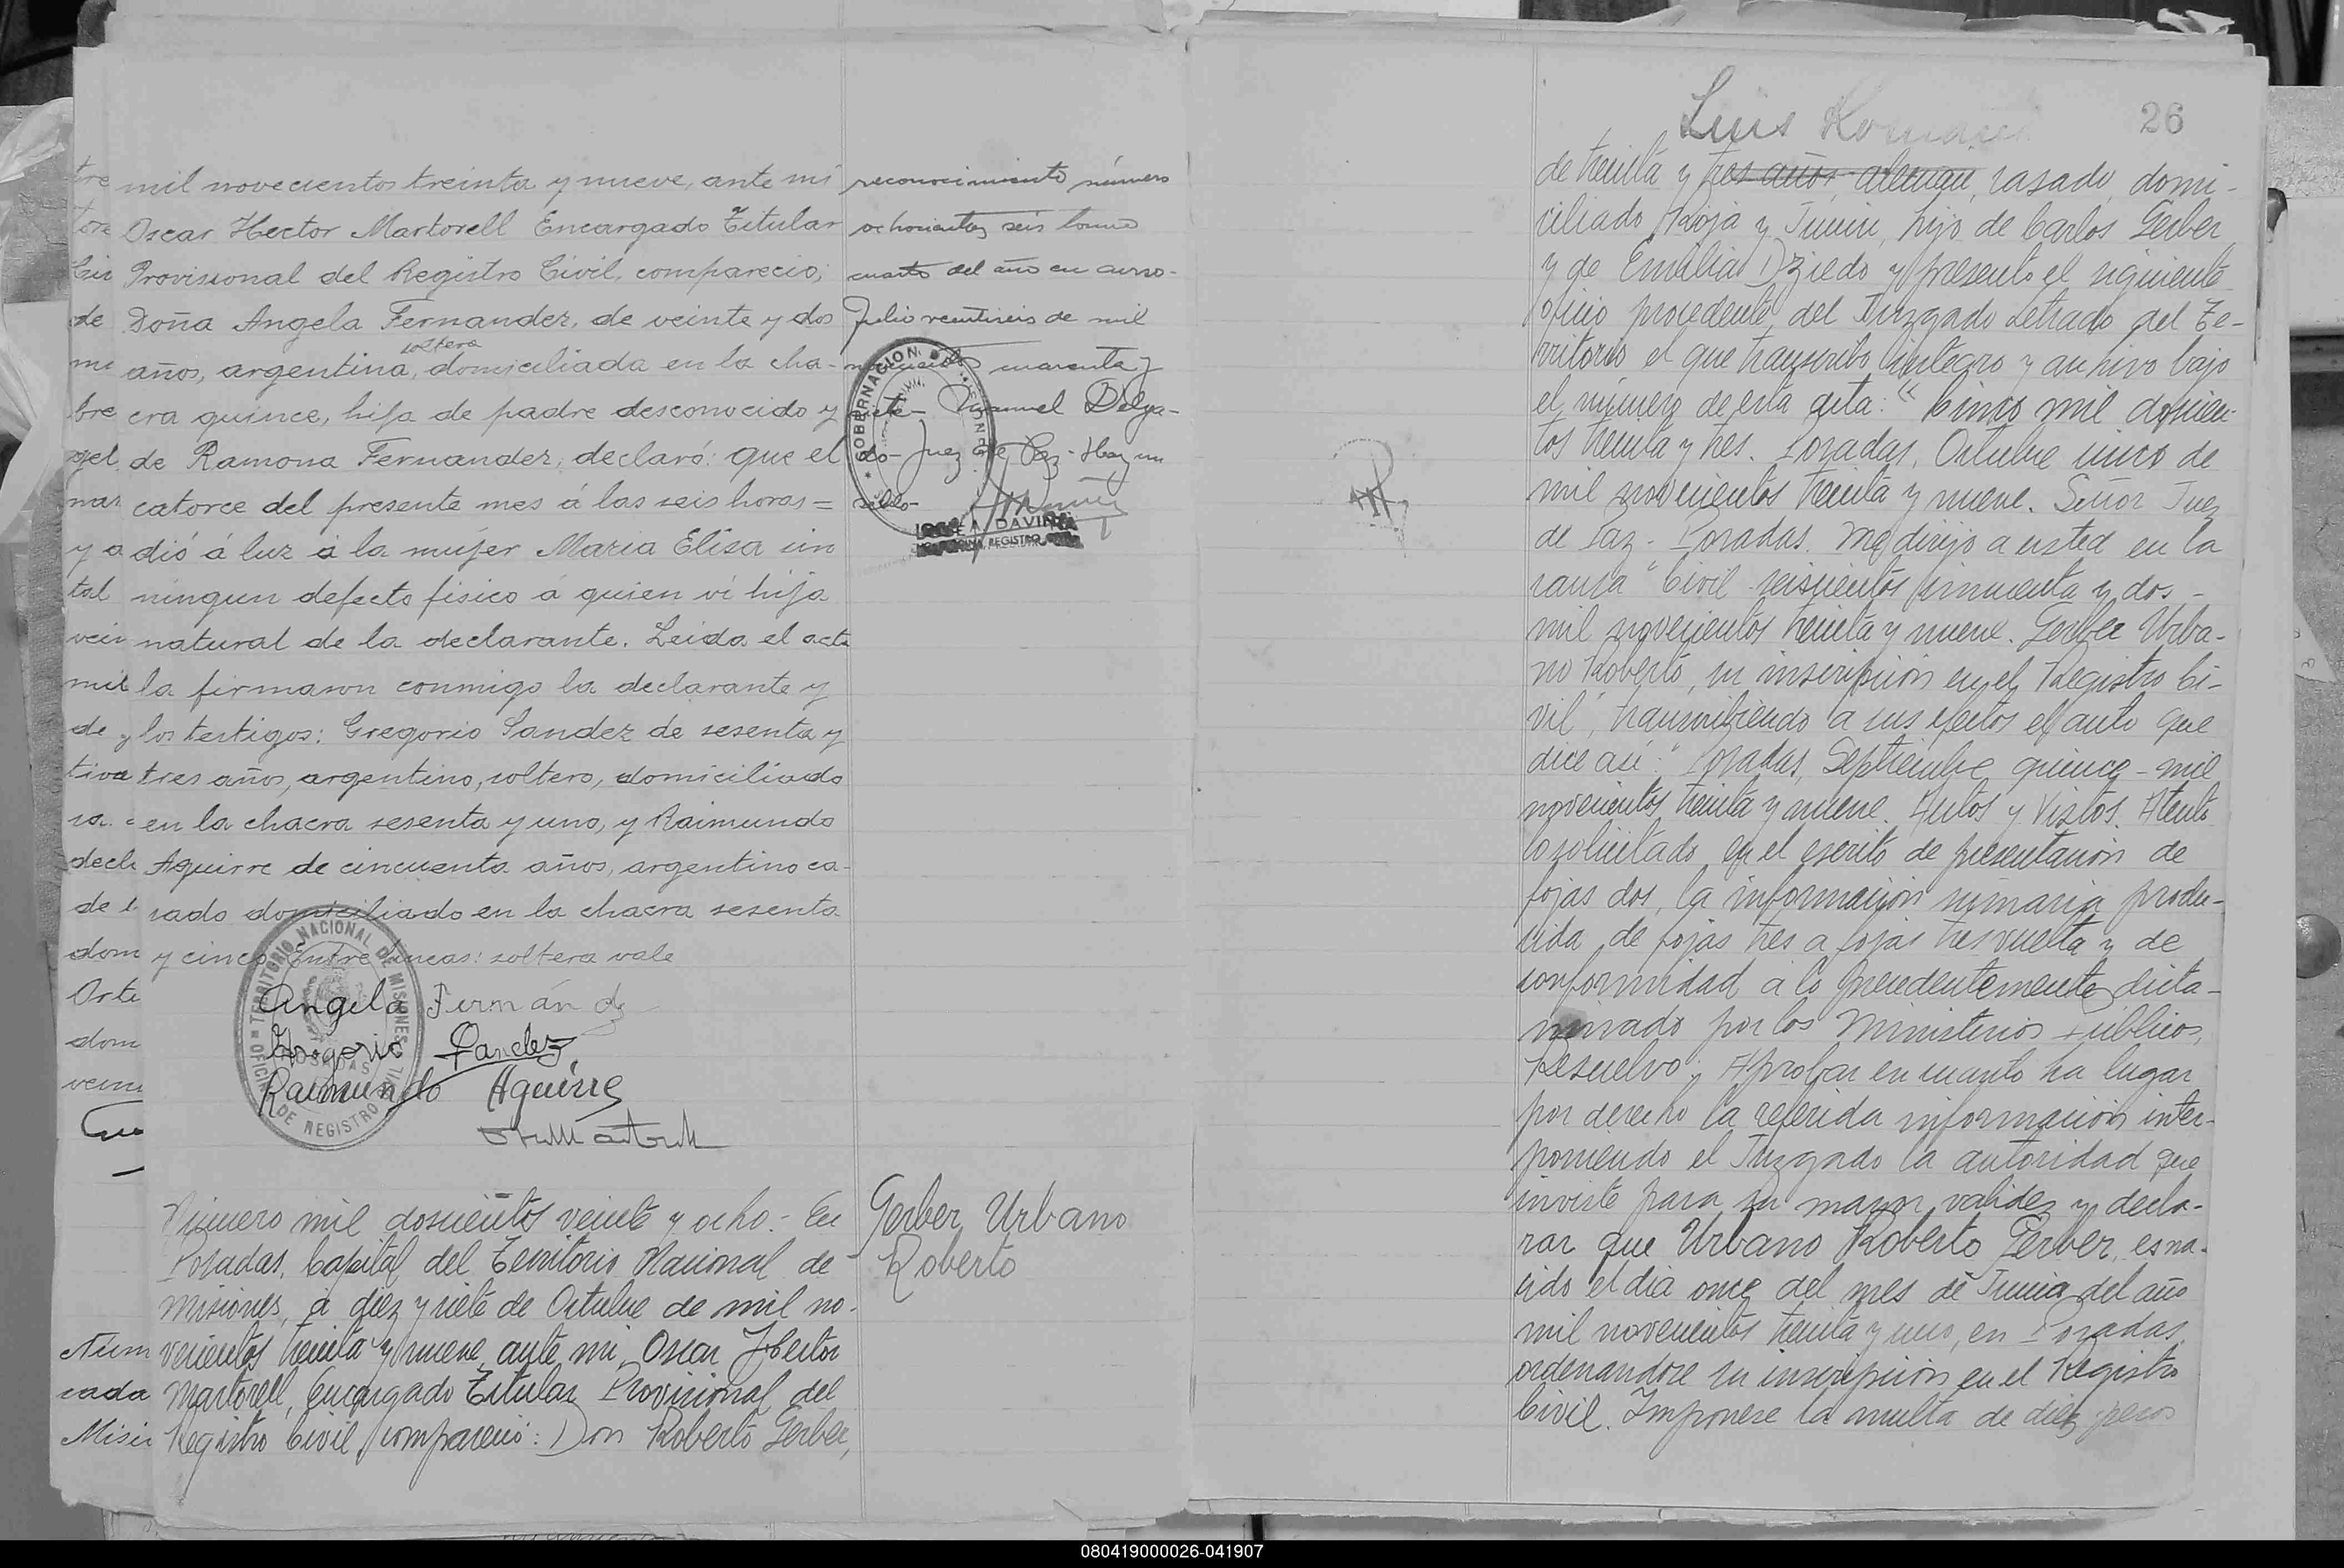 mil novecientos treinta y nueve, ante mi
Oscar Hector Martorell Encargado Titular
Provisional del Registro Civil, compareció;
Doña Angela Fernandez, de veinte y dos
soltera
años, argentina, domiciliada en la cha-
cra quince, hija de padre desconocido y
de Ramona Fernandez, declaró: que el
catorce del presente mes á las seis horas=
dió á luz á la mujer Maria Elisa sin
ningun defecto fisico á quien vi hija
natural de la declarante. Leida el acta
la firmaron conmigo la declarante y
los testigos: Gregorio Sandez de sesenta y
tres años, argentino, soltero, domiciliado
en la chacra sesenta y uno, y Raimundo
Aguirre de cincuenta años, argentino ca-
sado domiciliado en la chacra sesenta
y cinco Entre lineas: soltera vale
Angela Fernández
Gregorio Sandez
Raimundo Aguirre
TERRITORIO NACIONAL DE MISIONES
POSADAS
OFICINA DE REGISTRO CIVIL
reconocimiento número
ochocientos seis tomo
cuarto del año en curso-
Julio veintiseis de mil
novecientos cuarenta y
siete- Manuel Delga-
do- Juez de Paz- Hay un
sello-
GOBERNACION DE MISIONES
JOSE A. DAVIÑA
REGISTRO
Número mil doscientos veinte y ocho.- En
Posadas, Capital del Territorio Nacional de
Misiones, a diez y siete de Octubre de mil no-
vecientos treinta y nueve, ante mi, Oscar Hector
Martorell, Encargado Titular Provisional del
Registro Civil compareció: Don Roberto Gerber,
Gerber Urbano
Roberto
tre
de
bre
gel
nar
y a
tal
vein
mil
de y
tiva
sa.
decl
de l
dom
Orte
dom
vein
Num
cada
Misi
Luis
26
de treinta y tres años, aleman, casado, domi-
ciliado Rioja y Junin, hijo de Carlos Gerber
y de Emilia Dziedo y presento el siguiente
oficio procedente del Juzgado Letrado del Te-
rritorio el que transcribo integro y archivo bajo
el número de esta acta: "Cinco mil doscien-
tos treinta y tres. Posadas, Octubre cinco de
mil novecientos treinta y nueve. Señor Juez
de Paz - Posadas. Me dirijo a usted en la
causa "Civil - seiscientos cincuenta y dos -
mil novecientos treinta y nueve. Gerber Urba-
no Roberto, su inscripción en el Registro Ci-
vil", transcribiendo a sus efectos el auto que
dice asi: "Posadas, Septiembre quince - mil
novecientos treinta y nueve. Autos y Vistos. Atento
lo solicitado en el escrito de presentación de
fojas dos, la información sumaria produ-
cida de fojas tres a fojas tres vuelta y de
conformidad a lo precedentemente dicta-
minado por los Ministerios Públicos,
Resuelvo: Aprobar en cuanto ha lugar
por derecho la referida información inter-
poniendo el Juzgado la autoridad que
inviste para su mayor validez y decla-
rar que Urbano Roberto Gerber, es na-
cido el dia once del mes de Junio del año
mil novecientos treinta y uno, en Posadas,
ordenandose su inscripción en el Registro
Civil. Imponese la multa de diez pesos
080419000026-041907